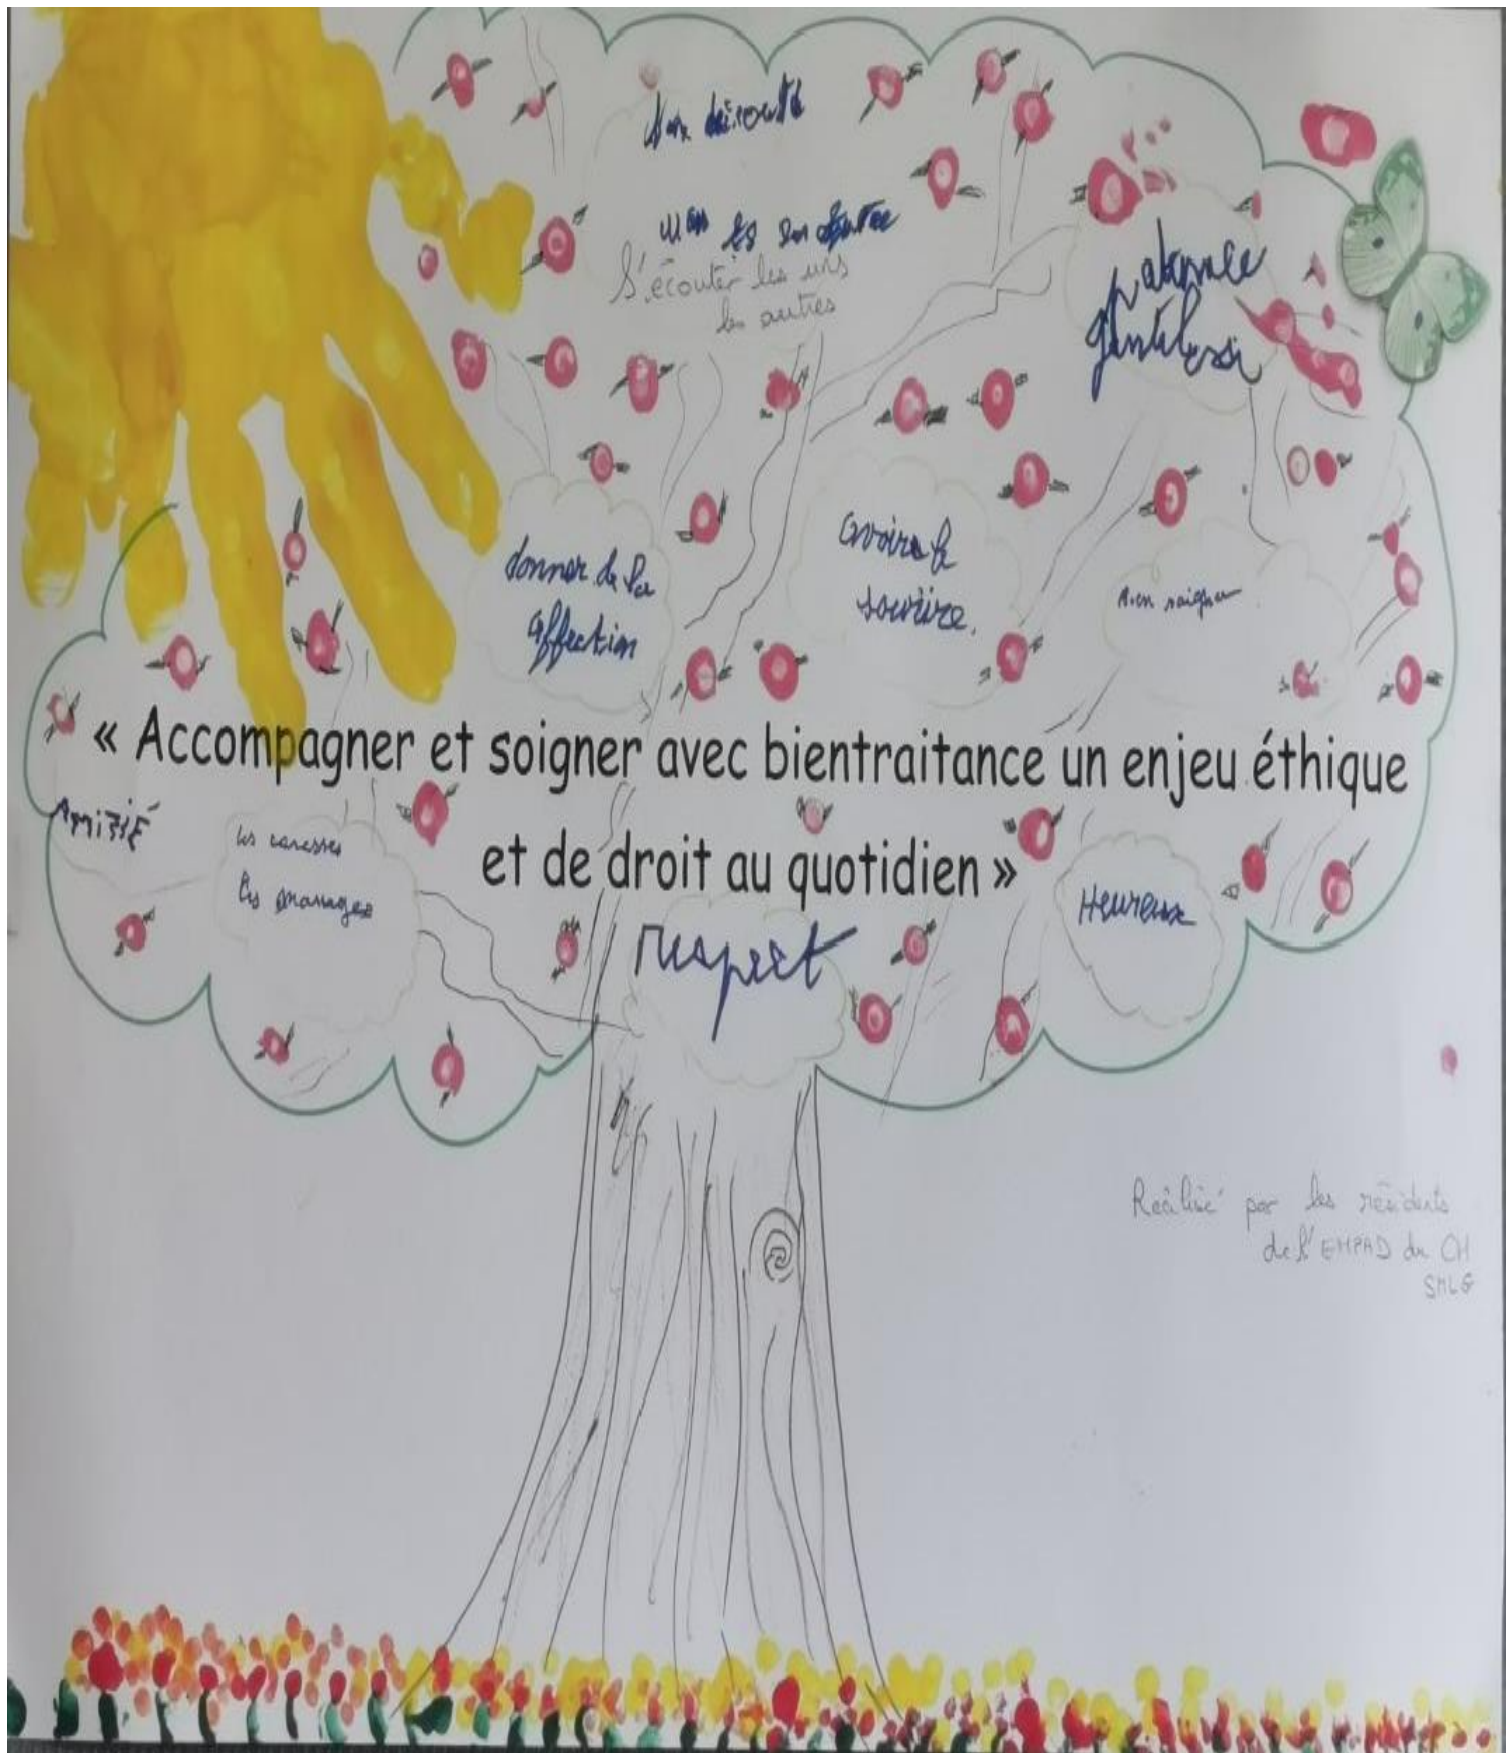 S'écouter les uns
les autres
patience
gentillesse
donner de la
affection
avoire le
sourire.
bien soigner
« Accompagner et soigner avec bientraitance un enjeu éthique
et de droit au quotidien »
Amitié
les caresses
les massages
Heureux
respect
Réalisé par les résidents
de l'EHPAD du CH
SMLG